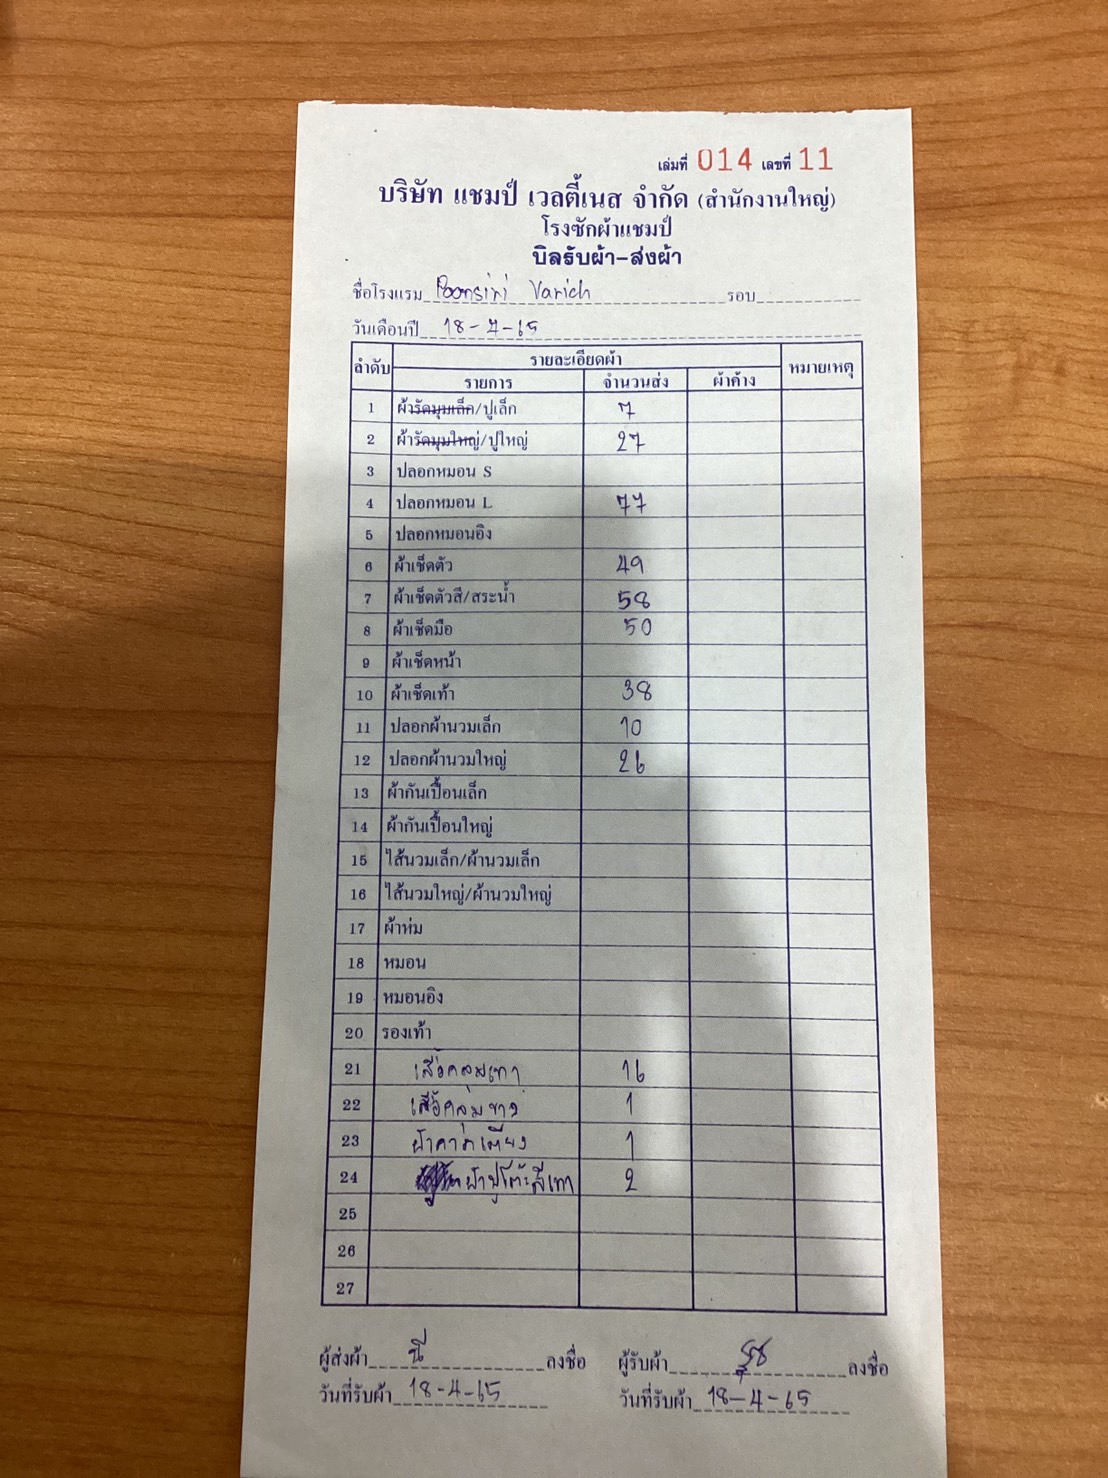 เล่มที่ 014 เลขที่ 11
บริษัท แชมป์ เวลตี้เนส จำกัด (สำนักงานใหญ่)
โรงซักผ้าแชมป์
บิลรับผ้า-ส่งผ้า
ชื่อโรงแรม Poonsiri Varich รอบ
วันเดือนปี 18-4-65
ลำดับ รายละเอียดผ้า หมายเหตุ
รายการ จำนวนส่ง ผ้าค้าง
1 ผ้ารัดมุมเล็ก/ปูเล็ก 7
2 ผ้ารัดมุมใหญ่/ปูใหญ่ 27
3 ปลอกหมอน S
4 ปลอกหมอน L 77
5 ปลอกหมอนอิง
6 ผ้าเช็ดตัว 49
7 ผ้าเช็ดตัวสี/สระน้ำ 58
8 ผ้าเช็ดมือ 50
9 ผ้าเช็ดหน้า
10 ผ้าเช็ดเท้า 38
11 ปลอกผ้านวมเล็ก 10
12 ปลอกผ้านวมใหญ่ 26
13 ผ้ากันเปื้อนเล็ก
14 ผ้ากันเปื้อนใหญ่
15 ไส้นวมเล็ก/ผ้านวมเล็ก
16 ไส้นวมใหญ่/ผ้านวมใหญ่
17 ผ้าห่ม
18 หมอน
19 หมอนอิง
20 รองเท้า
21 เสื้อคลุมเทา 16
22 เสื้อคลุมขาว 1
23 ผ้าคาดเตียง 1
24 ผ้าปูโต๊ะสีเทา 2
25
26
27
ผู้ส่งผ้า นี ลงชื่อ ผู้รับผ้า ลงชื่อ
วันที่รับผ้า 18-4-65 วันที่รับผ้า 18-4-65